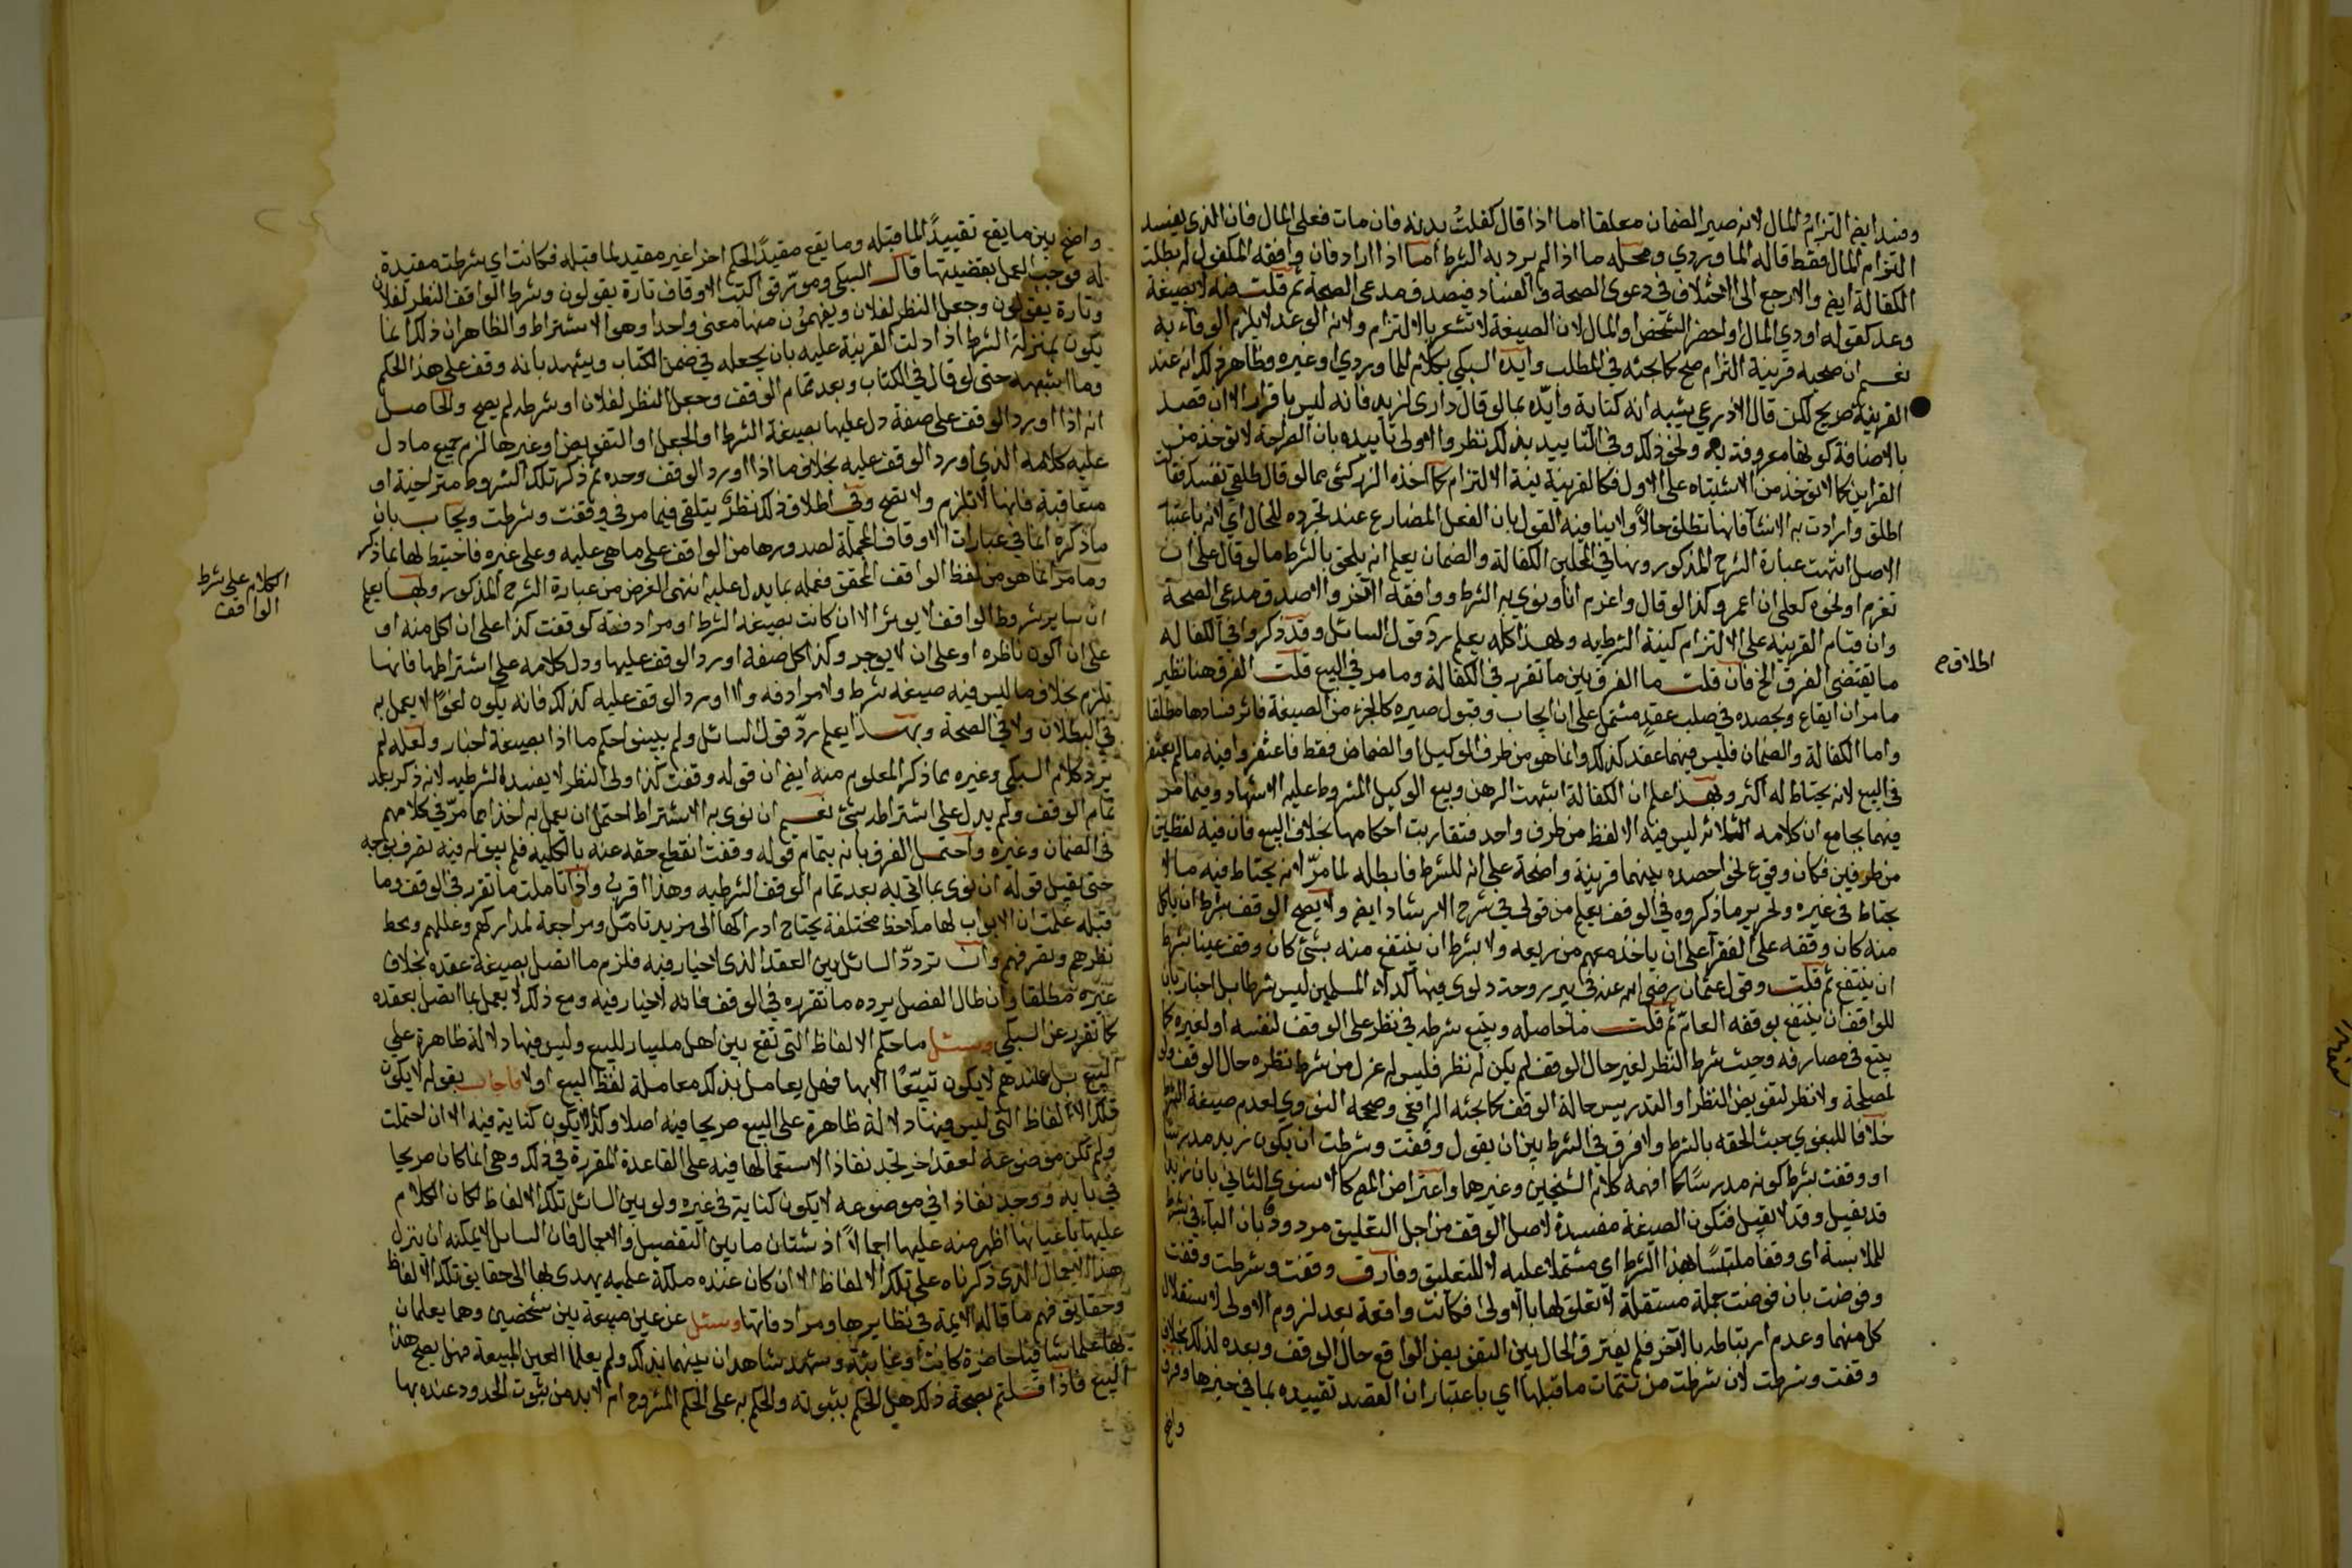 وفسد ايض التزام المال لانه صير الضمان معلقا اما اذا قال كفلت بدنه فان مات فعلى المال فان الذي يفسد
التزام المال فقط قاله الماوردي ومحله ما اذا لم يرد به الشرط اما اذا اراد فان وافقه المكفول له بطلت
الكفالة ايض والا رجع الى الاختلاف في دعوى الصحة والفساد فيصدق مدعي الصحة ثم قلت فيه لا بصيغة
وعد كقوله اودي المال او احضر الشخص او المال لان الصيغة لا تشعر بالالتزام ولانه الوعد لا يلزم الوفاء به
نعم ان صحبه قرينة التزام صح كما بحثه في المطلب وايده السبكي بكلام الماوردي وغيره وظاهر ذلك انه عند
القرينة صريح لكن قال الاذرعي يشبه انه كناية وايده بما لو قال داري لزيد فانه ليس باقرار الا ان قصد
بالاضافة كونها معروفة به ونحو ذلك وفي التاييد بذلك نظر والاولى تاييده بان الصراحة لا توخذ من
القراين كما لا توخذ من الاشتباه على الاول فكالقرينة نية الالتزام كما اخذه الزركشي مما لو قال طلقي نفسك فقالت
اطلق وارادت به الانشا فانها تطلق حالا ولا ينافيه القول بان الفعل المضارع عند تجرده للحال اي لانه باعتبار
الاصل انتهت عبارة الشرح المذكور وبها في المحلين الكفالة والضمان يعلم انه يلحق بالشرط ما لو قال على ان
تغرم او نحوه كعلى ان اعمر وكذا لو قال واغرم انا ونوى به الشرط ووافقه الاخر والا صدق مدعي الصحة
وان قيام القرينة على الالتزام كنية الشرطيه وبهذا كله يعلم رد قول السائل وقد ذكروا في الكفالة
ما يقتضي الفرق الخ فان قلت ما الفرق بين ما تقرر في الكفالة وما مر في البيع قلت الفرق هنا نظير
ما مر ان ايقاع وبحصده في صلب عقد مشتمل على ايجاب وقبول صيره كالجزء من الصيغة فاثر فسادها مطلقا
واما الكفالة والضمان فليس فيهما عقد كذلك وانما هو من طرف الوكيل او الضامن فقط فاغتفروا فيه ما لم يغتفر
في البيع لانه يحتاط له اكثر وبهذا علم ان الكفالة اشبهت الرهن وبيع الوكيل المشروط عليه الاشهاد وفيما مر
فيهما بجامع ان كلامه الثلاثه ليس فيه الا لفظ من طرف واحد فتقاربت احكامها بخلاف البيع فان فيه لفظين
من طرفين فكان وقوع نحو احصده بينهما قرينة واضحة على انه للشرط فابطله لما مر لانه يحتاط فيه ما لا
يحتاط في غيره وتحرير ما ذكروه في الوقف يعلم من قولي في شرح الارشاد ايض ولا يصح الوقف بشرط ان ياكل
منه كان وقفه على الفقرا على ان ياخذ معهم من ريعه ولا بشرط ان ينتفع منه بشئ كان وقف عينا بشرط
ان ينتفع ثم قلت وقول عثمان رضي الله عنه في بير رومة دلوي فيها كدلاء المسلمين ليس شرطا بل اخبار بان
للواقف ان ينتفع بوقفه العام ثم قلت ما حاصله ويتبع شرطه في نظر على الوقف لنفسه او لغيره كما
يتبع في مصارفه وحيث شرط النظر لغير حال الوقف لم يكن له نظر فليس له عزل من شرط نظره حال الوقف ولو
لمصلحة ولا نظر لتفويض النظر او التدريس حالة الوقف كما بحثه الرافعي وصححه النووي لعدم صيغة الشرط
خلافا للبغوي حيث الحقه بالشرط ولا فرق في الشرط بين ان يقول وقفت وشرطت ان يكون زيد مدرسا
او وقفت بشرط كونه مدرسا كما افهمه كلام الشيخين وغيرهما واعتراض الجمع كالاسنوي الثاني بان زيدا
قد يقبل وقد لا يقبل فتكون الصيغة مفسدة لاصل الوقف من اجل التعليق مردود بان الباء في بشرط
للملابسة اي وقفا ملتبسا بهذا الشرط اي مشتملا عليه لا للتعليق وفارق وقفت وشرطت وقفت
وفوضت بان فوضت جملة مستقلة لا تعلق لها بالاولى فكانت واقعة بعد لزوم الاولى لاستقلال
كل منهما وعدم ارتباطه بالاخر فلم يفترق الحال بين التفويض الواقع حال الوقف وبعده لذلك بخلاف
وقفت وشرطت لان شرطت من تتمات ما قبلها اي باعتبار ان القصد تقييده بما في حيزها وفرق
واضح
اطلاق م
واضح بين ما يقع تقييدا لما قبله وما يقع مقيدا لحكم اخر غير مقيد لما قبله فكانت اي شرطت مقيدة
له فوجب العمل بقضيتها قال السبكي وموثقوا كتب الاوقاف تارة يقولون وشرط الواقف النظر لفلان
وتارة يقولون وجعل النظر لفلان ويفهمون منها معنى واحدا وهو الاشتراط والظاهر ان ذلك انما
يكون بمنزلة الشرط اذا دلت القرينة عليه بان يجعله في ضمن الكتاب ويشهد بانه وقف على هذا الحكم
وما اشبهه حتى لو قال في الكتاب وبعد تمام الوقف وجعل النظر لفلان او شرطه لم يصح والحاصل
انه اذا اورد الوقف على صفة دل عليها بصيغة الشرط او الجعل او التفويض او غيرها لزم جميع ما دل
عليه كلامه الذي اورد الوقف عليه بخلاف ما اذا اورد الوقف وحده ثم ذكر تلك الشروط متراخية او
متعاقبة فانها لا تلزم ولا تصح وفي اطلاق ذلك نظر يتلقى فيما مر في وقفت وشرطت ويجاب بان
ما ذكره انما في عبارات الاوقاف المجملة لصدورها من الواقف على ما هي عليه وعلى غيره فاحتيط لها بما ذكر
وما مر انما هو من لفظ الواقف المحقق فعمله بما يدل عليه انتهى الغرض من عبارة الشرح المذكور وبها يعلم
ان ساير شروط الواقف لا يوثر الا ان كانت بصيغة الشرط او مرادفة كوقفت كذا على ان اكل منه او
على ان اكون ناظره او على ان لا يوجر وكذا كل صفة اورد الوقف عليها ودل كلامه على اشتراطها فانها
تلزم بخلاف ما ليس فيه صيغة شرط ولا مرادفه ولا اورد الوقف عليه كذلك فانه يكون لغوا لا يعمل به
في البطلان ولا في الصحة وبهذا يعلم رد قول السائل ولم يبينوا حكم ما اذا بصيغة اخبار ولعله لم
ير كلام السبكي وغيره بما ذكر المعلوم منه ايض ان قوله وقفت كذا ولي النظر لا يفيد الشرطيه لانه ذكر بعد
تمام الوقف ولم يدل على اشتراطه شئ نعم ان نوى به الاشتراط احتمل ان يعمل به اخذا مما مر في كلامهم
في الضمان وغيره واحتمل الفرق بانه بتمام قوله وقفت انقطع حقه عنه بالكليه فلم يبق له فيه تصرف بوجه
حتى يقبل قوله ان نوى بما اتى به بعد تمام الوقف الشرطيه وهذا اقرب واذا تاملت ما تقرر في الوقف وما
قبله علمت ان الابواب لها ملاحظ مختلفة يحتاج ادراكها الى مزيد تامل ومراجعة لمداركهم وعللهم ومحط
نظرهم وتصرفهم وان تردد السائل بين العقد الذي لا خيار فيه فلزم ما اتصل بصيغة عقده بخلاف
غيره مطلقا وان طال الفصل يرده ما تقرره في الوقف فانه لا خيار فيه ومع ذلك لا يعمل بما اتصل بعقده
كما تقرر عن السبكي وسئل ما حكم الالفاظ التي تقع بين اهل مليبار للبيع وليس فيها دلالة ظاهرة على
البيع بل عندهم لا يكون تبيعا الا بها فهل يعامل بذلك معاملة لفظ البيع او لا فاجاب بقوله لا يكون
تلك الالفاظ التي ليس فيها دلالة ظاهرة على البيع صريحا فيه اصلا وكذا لا يكون كناية فيه الا ان احتملت
ولم تكن موضوعة لعقد اخر تجد نفاذا لاستعمالها فيه على القاعدة المقررة في ذلك وهي انما كان صريحا
في بابه ووجد نفاذا في موضوعه لا يكون كناية في غيره ولو بين السائل تلك الالفاظ لكان الكلام
عليها باعيانها اظهر منه عليها اجمالا اذ شتان ما بين التفصيل والاجمال فان السايل لا يمكنه ان ينزل
هذا الاجمال الذي ذكرناه على تلك الالفاظ الا ان كان عنده ملكة علميه يهدى بها الى حقايق تلك الالفاظ
وحقايق فهم ما قاله الائمة في نظايرها ومرادفاتها وسئل عن عين مبيعة بين شخصين وهما يعلمان
بها علما شافيا حاضرة كانت او غايبة وشهد شاهدان بينهما بذلك ولم يعلما العين المبيعة فهل يصح هذا
البيع فاذا قلتم بصحة ذلك هل الحكم بثبوته والحكم به على الحكم المشروح ام لا بد من ثبوت الحدود عنده بها
الكلام على شرط
الواقف